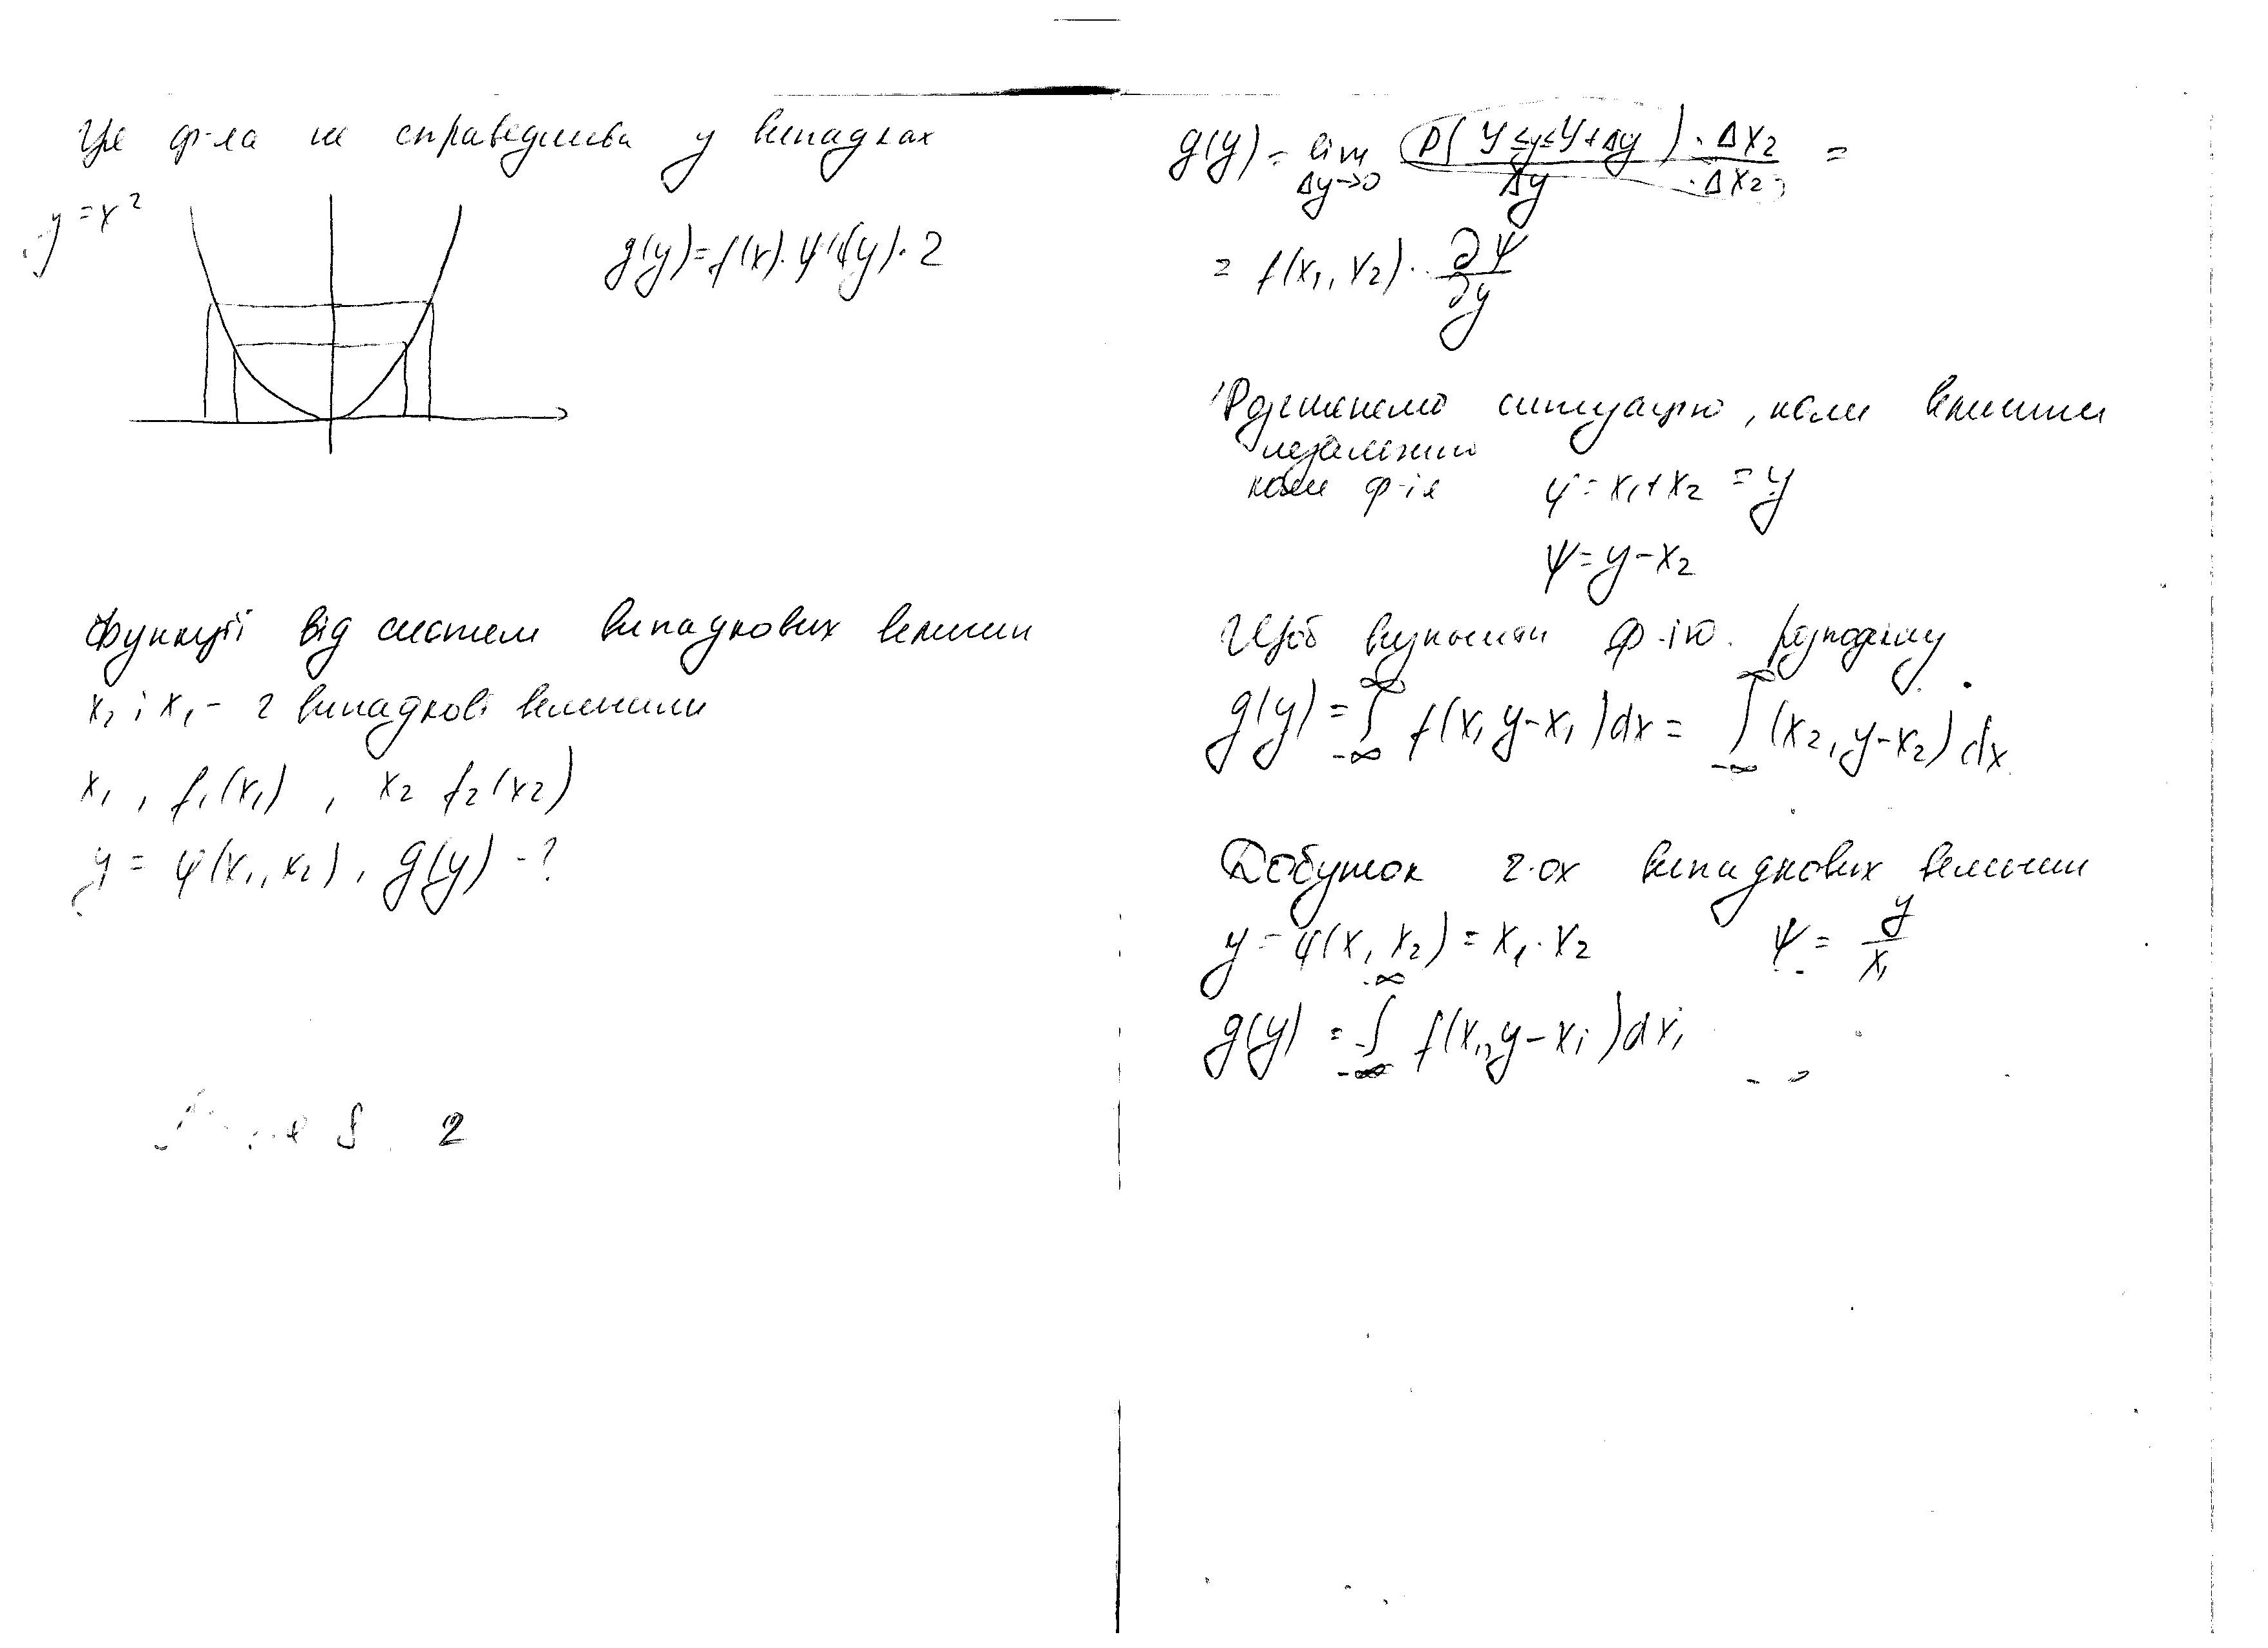 Ця ф-ла не справедлива у випадках
y = x²
g(y) = f(x)·ψ'(y)·2
Функції від систем випадкових величин
x₂ і x₁ – 2 випадкові величини
x₁, f₁(x₁), x₂ f₂(x₂)
y = φ(x₁, x₂), g(y) - ?
2
g(y) = lim Δy→0 P(Y ≤ y ≤ Y + Δy)·Δx₂ / Δy·Δx₂ =
= f(x₁, x₂)·∂ψ/∂y
Розглянемо ситуацію, коли величини
незалежні
коли ф-ія φ = x₁ + x₂ = y
ψ = y – x₂
Щоб визначити ф-ію розподілу
g(y) = ∫_{-∞}^{∞} f(x₁ y – x₁)dx = ∫_{-∞}^{∞} (x₂, y – x₂) dx
Добуток 2-ох випадкових величин
y = φ(x₁ x₂) = x₁·x₂ ψ = y/x₁
g(y) = ∫_{-∞}^{∞} f(x₁, y – x₁)dx₁